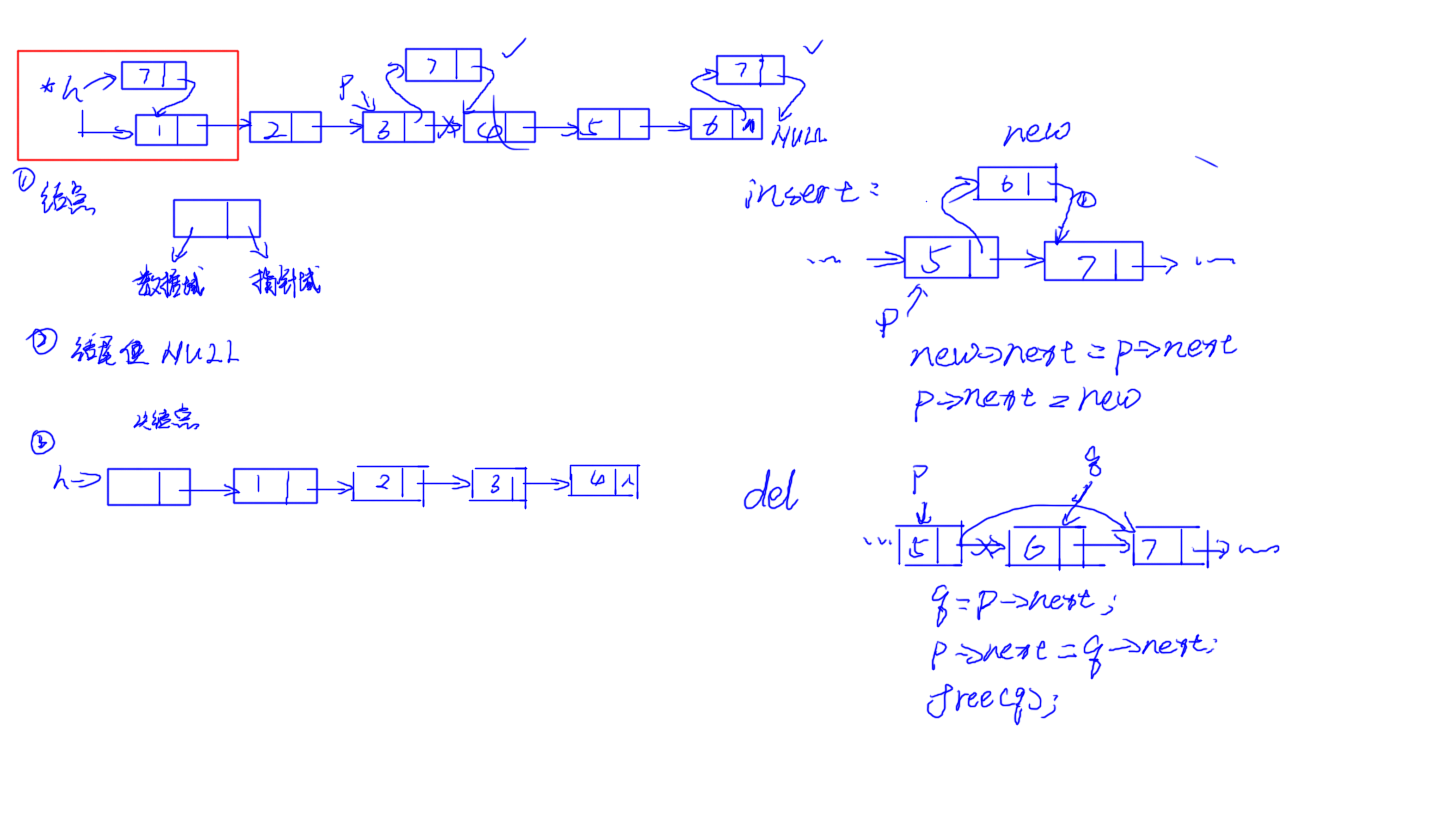 *h
7
7
7
p
1 2 3 4 5 6 N
NULL
① 结点
数据域 指针域
② 结尾使 NULL
头结点
③
h→ 1 2 3 4 N
new
insert:
6 ①
... 5 7 ...
p
new→next = p→next
p→next = new
del
p q
... 5 6 7 ...
q=p→next;
p→next=q→next;
free(q);